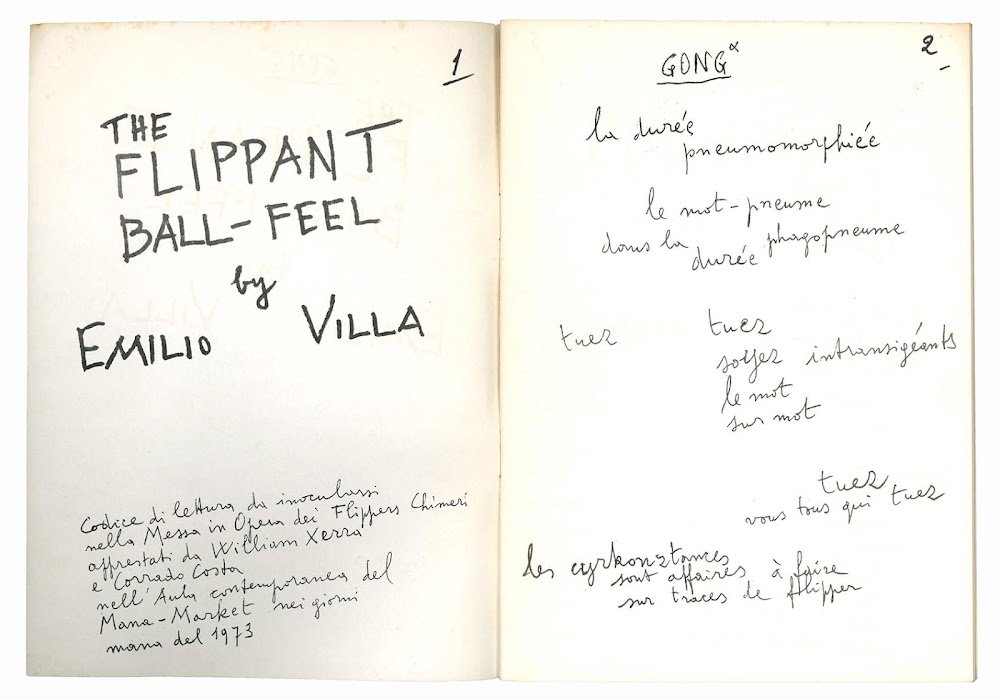 1
THE
FLIPPANT
BALL-FEEL
by
EMILIO VILLA
Codice di lettura da inocularsi
nella Messa in Opera dei Flippers Chimeri
apprestati da William Xerra
e Corrado Costa
nell'Aula contemporanea del
Mana-Market nei giorni
mana del 1973
2
GONG
la durée
pneumomorphiée
le mot-pneume
dans la durée phagopneume
tuez tuez
soyez intransigéants
le mot
sur mot
tuez
vous tous qui tuez
les cyrkonztances
sont affaires à faire
sur traces de flipper